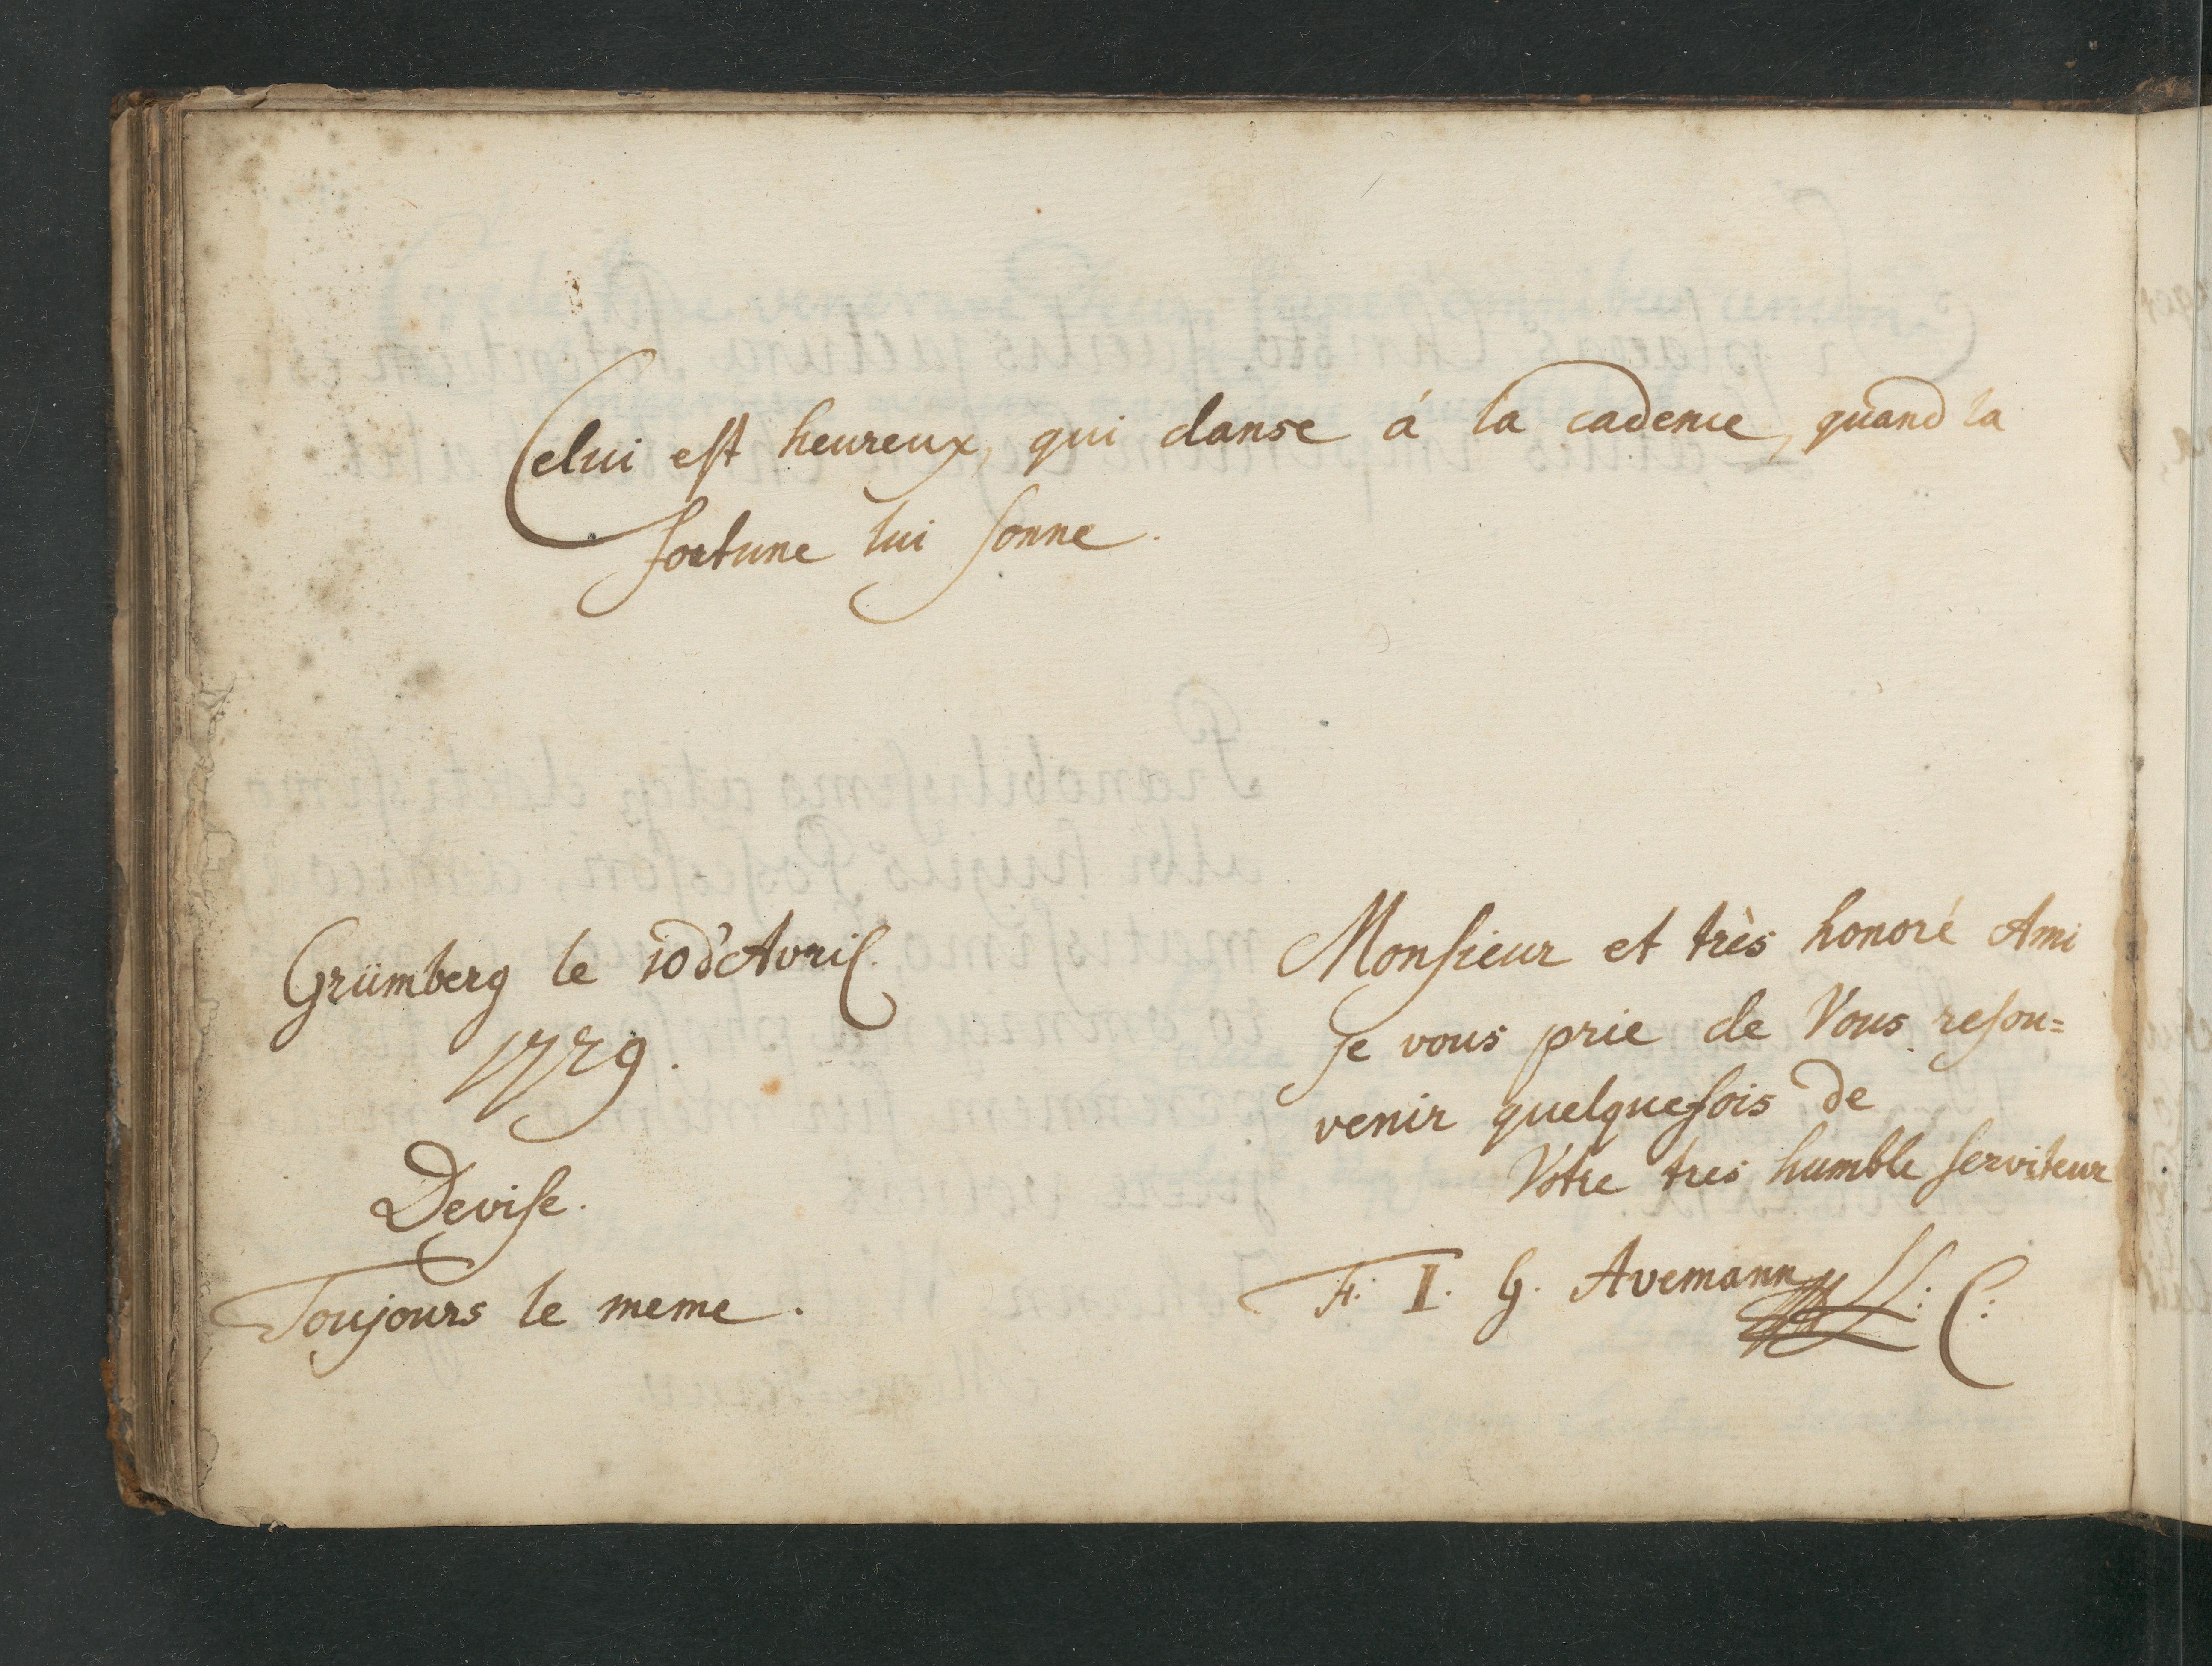 Celui est heureux, qui danse á la cadence, quand la
fortune lui sonne.
Grümberg le 10 d'Avril.
1729.
Devise.
Toujours le meme.
Monsieur et très honoré Ami
je vous prie de Vous resou=
venir quelquefois de
Votre tres humble serviteur
F. I. G. Avemann LL: C: